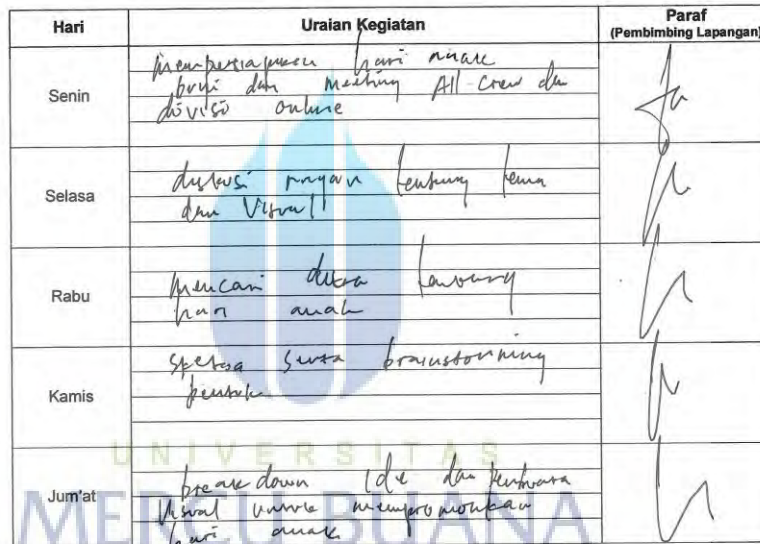 Hari Uraian Kegiatan Paraf
(Pembimbing Lapangan)
Senin
mempersiapkan hari anak
dan meeting All-Crew dan
divisi online
Selasa
diskusi ringan tentang tema
dan Visual
Rabu
mencari data tentang
hari anak
Kamis
sketsa serta brainstorming
bentuk
UNIVERSITAS
MERCU BUANA
Jum'at
break down Ide dan
Visual untuk mempromosikan
hari anak